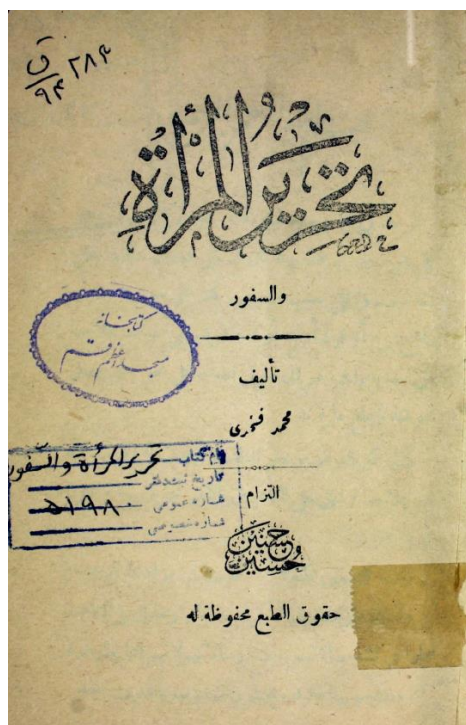 ق ٢٨٤
٩٤
تحرير المرأة
والسفور
كتابخانه
مسجد اعظم قم
تأليف
محمد فخرى
نام كتاب تحرير المرأة والسفور
تاريخ ثبت دفتر
شماره عمومى ٥١٩٨٠
شماره خصوصى
التزام
حسنين حسين
حقوق الطبع محفوظة له